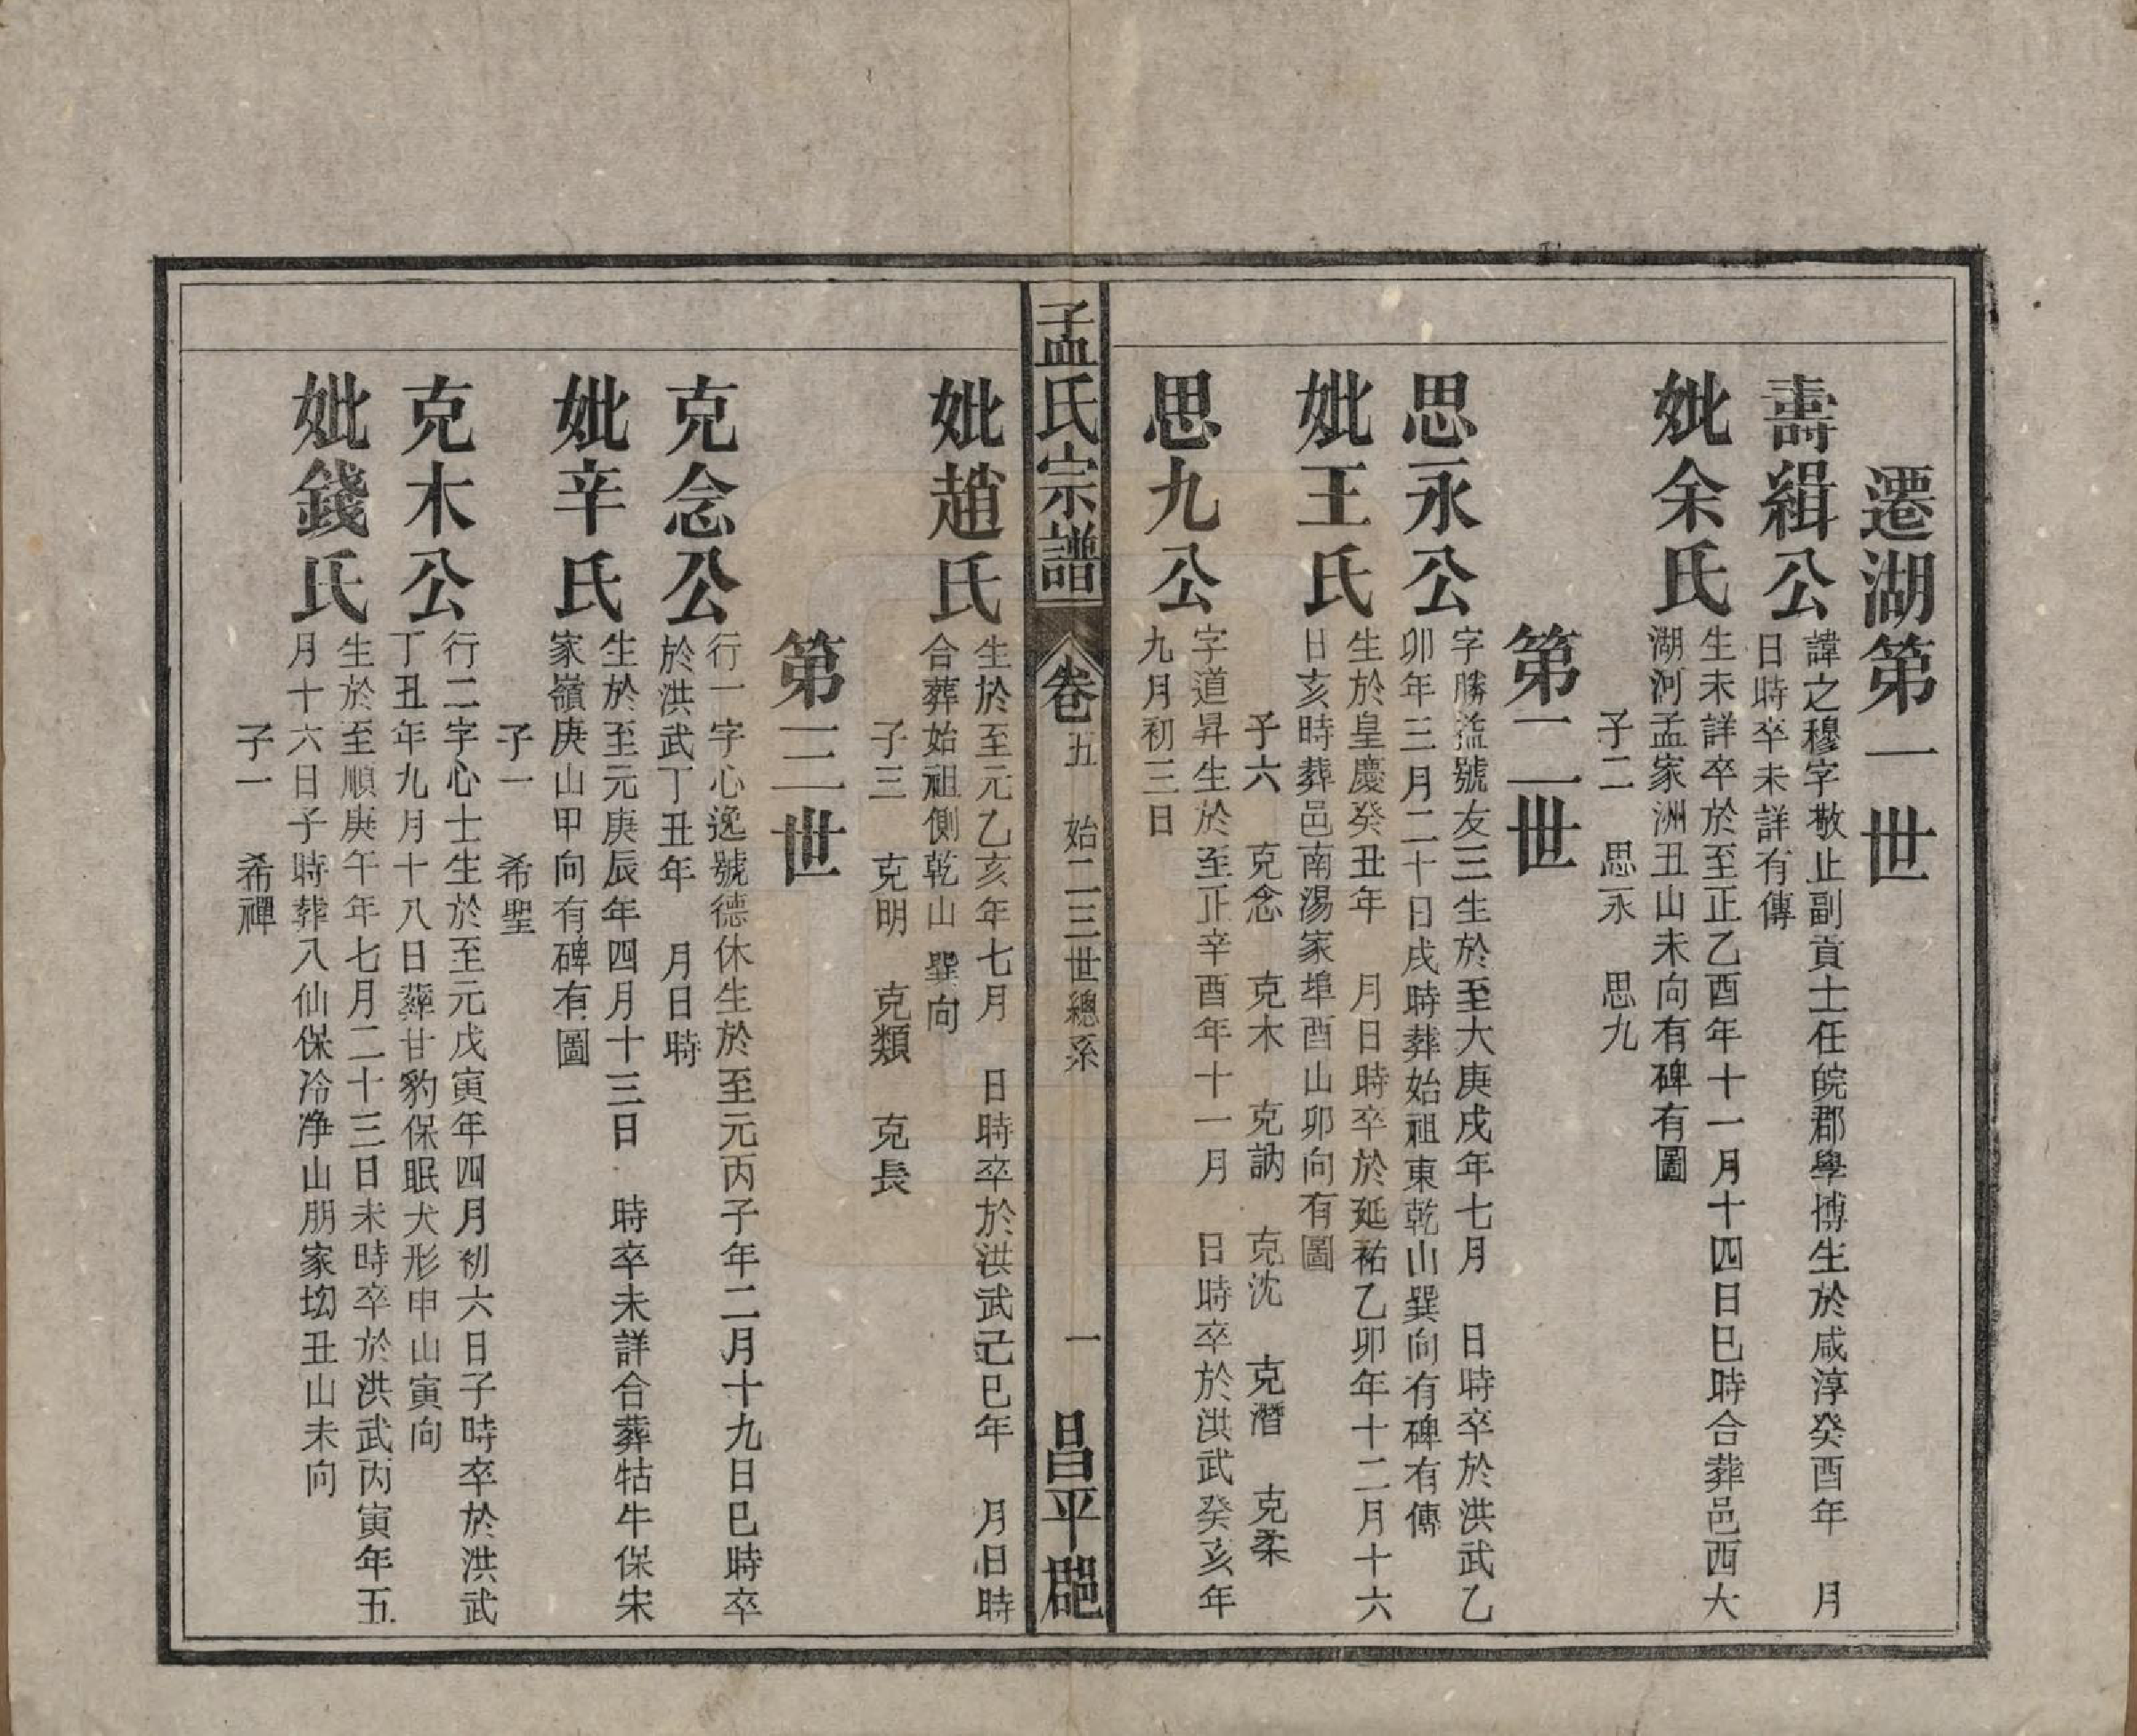 遷湖第一世
壽緝公
諱之穆字敬止副貢士任皖郡學博生於咸淳癸酉年 月
日時卒未詳有傳
妣余氏
生未詳卒於至正乙酉年十一月十四日巳時合葬邑西大
湖河孟家洲丑山未向有碑有圖
子二 思永 思九
第二世
思永公
字勝益號友三生於至大庚戌年七月 日時卒於洪武乙
卯年三月二十日戌時葬始祖東乾山巽向有碑有傳
妣王氏
生於皇慶癸丑年 月日時卒於延祐乙卯年十二月十六
日亥時葬邑南湯家埠酉山卯向有圖
子六 克念 克木 克訥 克沈 克潛 克柔
思九公
字道昇生於至正辛酉年十一月 日時卒於洪武癸亥年
九月初三日
孟氏宗譜 卷五 始二三世總系 一 昌平郡
妣趙氏
生於至元乙亥年七月 日時卒於洪武己巳年 月日時
合葬始祖側乾山巽向
子三 克明 克類 克長
第三世
克念公
行一字心逸號德休生於至元丙子年二月十九日巳時卒
於洪武丁丑年 月日時
妣辛氏
生於至元庚辰年四月十三日 時卒未詳合葬牯牛保宋
家嶺庚山甲向有碑有圖
子一 希聖
克木公
行二字心士生於至元戊寅年四月初六日子時卒於洪武
丁丑年九月十八日葬甘豹保眠犬形申山寅向
妣錢氏
生於至順庚午年七月二十三日未時卒於洪武丙寅年五
月十六日子時葬入仙保冷净山朋家坳丑山未向
子一 希禪